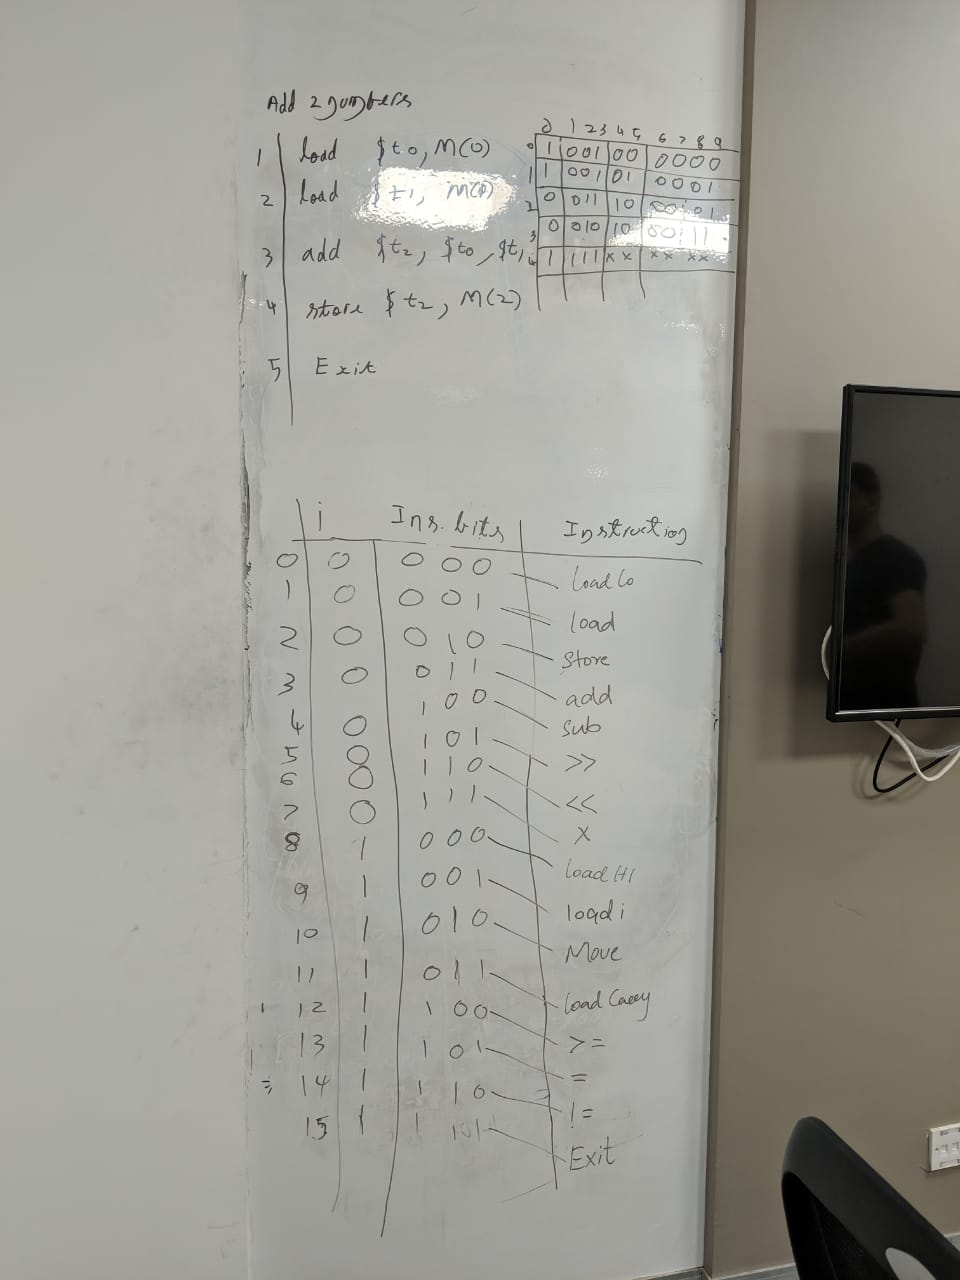 Add 2 numbers
1 load $t0, M(0)
2 load $t1, M(0)
3 add $t2, $t0, $t1
4 store $t2, M(2)
5 Exit
0 1 2 3 4 5 6 7 8 9
0 1 001 00 0000
1 1 001 01 0001
2 0 011 10 0001
3 0 010 10 0011
4 1 111 xx xx xx
i Ins. bits Instruction
0 0 000 load Lo
1 0 001 load
2 0 010 store
3 0 011 add
4 0 100 sub
5 0 101 >>
6 0 110 <<
7 0 111 X
8 1 000 load HI
9 1 001 load i
10 1 010 Move
11 1 011 load Carry
12 1 100 >=
13 1 101 =
14 1 110 !=
15 1 111 Exit